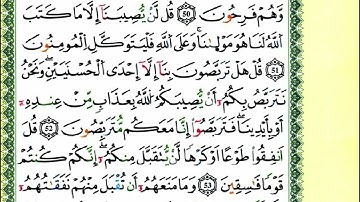 وَّهُمْ فَرِحُونَ ٥٠ قُلْ لَّنْ يُّصِيبَنَآ إِلَّا مَا كَتَبَ
اللّٰهُ لَنَا هُوَ مَوْلٰىنَا ۚ وَعَلَى اللّٰهِ فَلْيَتَوَكَّلِ الْمُؤْمِنُونَ
٥١ قُلْ هَلْ تَرَبَّصُونَ بِنَآ إِلَّآ إِحْدَى الْحُسْنَيَيْنِ ۖ وَنَحْنُ
نَتَرَبَّصُ بِكُمْ أَنْ يُّصِيبَكُمُ اللّٰهُ بِعَذَابٍ مِّنْ عِنْدِهٖٓ
أَوْ بِأَيْدِينَا ۖ فَتَرَبَّصُوٓا إِنَّا مَعَكُمْ مُّتَرَبِّصُونَ ٥٢ قُلْ
أَنْفِقُوا طَوْعًا أَوْ كَرْهًا لَّنْ يُّتَقَبَّلَ مِنْكُمْ ۖ إِنَّكُمْ كُنْتُمْ
قَوْمًا فَاسِقِينَ ٥٣ وَمَا مَنَعَهُمْ أَنْ تُقْبَلَ مِنْهُمْ نَفَقَاتُهُمْ